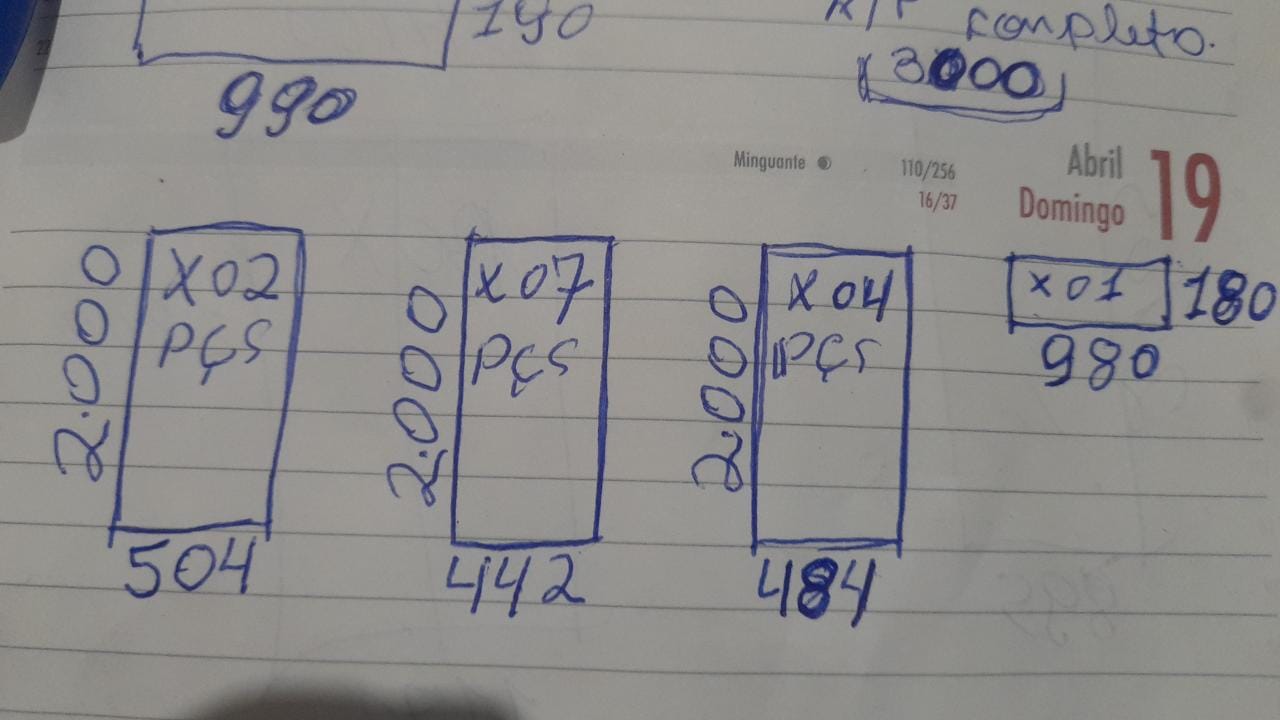 190
completo.
990
3000
Minguante
110/256
16/37
Abril
Domingo
19
2.000
X02
PÇS
504
2.000
X07
PÇS
442
2.000
X04
PÇS
484
X01
180
980